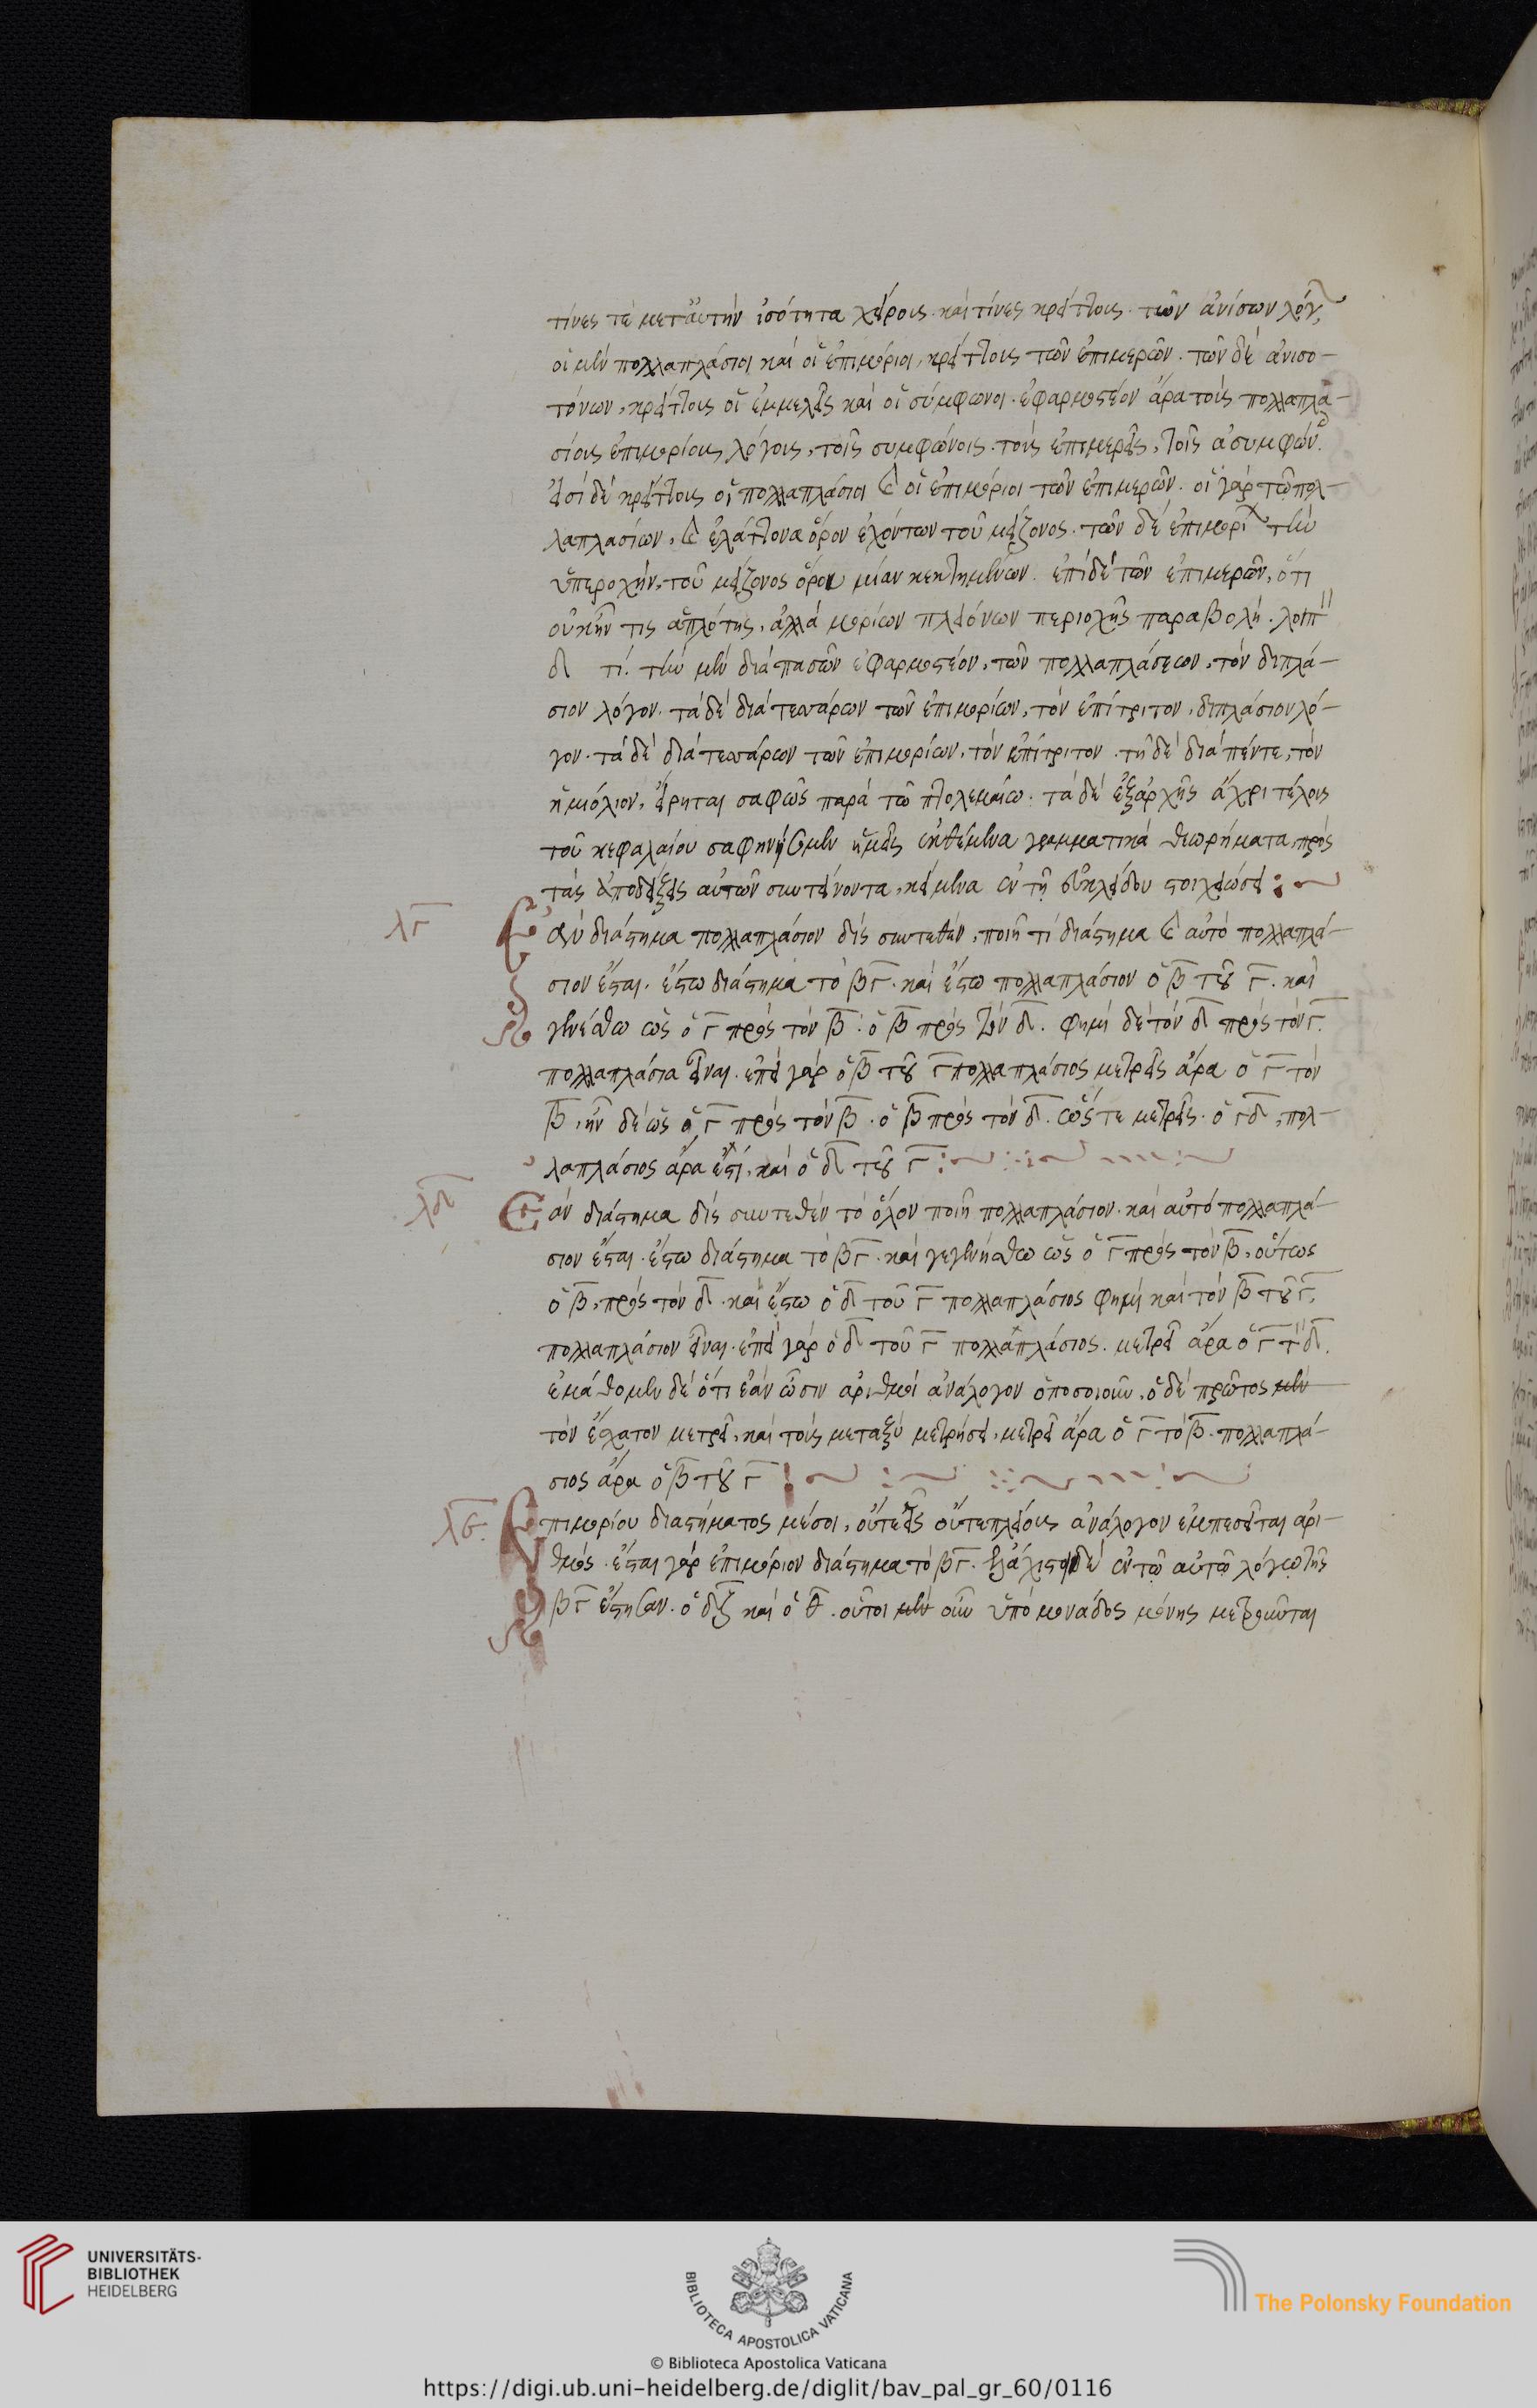 τίνες τὲ μετ' ἀυτὴν ἰσότητα χείρους. καὶ τίνες κρείττους. τῶν ἀνίσων λόγ
οἱ μὲν πολλαπλάσιοι καὶ οἱ ἐπιμόριοι, κρείττους τῶν ἐπιμερῶν. τῶν δὲ ἀνισο-
τόνων, κρείττους οἱ ἐμμελεῖς καὶ οἱ σύμφωνοι. ἐφαρμοστέον ἄρα τοὺς πολλαπλα-
σίους ἐπιμορίους λόγους, τοῖς συμφώνοις. τοὺς ἐπιμερεῖς, τοῖς ἀσυμφών
εἰσὶ δὲ κρείττους οἱ πολλαπλάσιοι καὶ οἱ ἐπιμόριοι τῶν ἐπιμερῶν. οἱ γὰρ τῶ πολ-
λαπλασίων, καὶ ἐλάττονα ὅρον ἐχόντων τοῦ μείζονος. τῶν δὲ ἐπιμορί τὴν
ὑπεροχὴν, τοῦ μείζονος ὅρου μίαν κεκτημένων. ἐπὶ δὲ τῶν ἐπιμερῶν, ὅτι
οὐκ ἦν τις ἁπλότης, ἀλλὰ μορίων πλειόνων περιοχῆς παραβολὴ. λοιπ
δ τί. τὴν μὲν διὰ πασῶν ἐφαρμοστέον, τῶν πολλαπλάσεων, τὸν διπλά-
σιον λόγον. τὰ δὲ διὰ τεσσάρων τῶν ἐπιμορίων, τὸν ἐπίτριτον, διπλάσιον λό-
γον. τὰ δὲ διὰ τεσσάρων τῶν ἐπιμορίων, τὸν ἐπίτριτον. τῆ δὲ διὰ πέντε, τὸν
ἡμιόλιον, εἴρηται σαφῶς παρὰ τῶ πτολεμαίω. τὰ δὲ ἐξαρχῆς ἄχρι τέλους
τοῦ κεφαλαίου σαφηνήσωμεν ἡμεῖς ἐκθέμενα γραμματικὰ θεωρήματα, πρὸς
τὰς ἀποδείξεις αὐτῶν συντείνοντα, κείμενα ἐν τῆ ἐυκλείδου στοιχειώσει :~
λγ Ἐὰν διάστημα πολλαπλάσιον δὶς συντεθὲν, ποιῆ τί διάστημα καὶ αὐτὸ πολλαπλά-
σιον ἔσται. ἔστω διάστημα τὸ βγ. καὶ ἔστω πολλαπλάσιον ὁ β τοῦ γ. καὶ
γενέσθω ὡς ὁ γ πρὸς τὸν β. ὁ β πρὸς τὸν δ. φημὶ δὲ τὸν δ πρὸς τὸν γ.
πολλαπλάσια εἶναι. ἐπεὶ γὰρ ὁ β τοῦ γ πολλαπλάσιος μετρεῖς ἄρα ὁ γ τὸν
β, ἦν δὲ ὡς ὁ γ πρὸς τὸν β. ὁ β πρὸς τὸν δ. ὥστε μετρεῖς. ὁ γ δ, πολ-
λαπλάσιος ἄρα ἐστί, καὶ ὁ δ τοῦ γ :~
λδ Ἐὰν διάστημα δὶς συντεθὲν τὸ ὅλον ποιῆ πολλαπλάσιον. καὶ αὐτὸ πολλαπλά-
σιον ἔσται. ἔστω διάστημα τὸ βγ. καὶ γεγενήσθω ὡς ὁ γ πρὸς τὸν β, οὕτως
ὁ β, πρὸς τὸν δ. καὶ ἔστω ὁ δ τοῦ γ πολλαπλάσιος φημὶ καὶ τὸν β τοῦ γ,
πολλαπλάσιον εἶναι. ἐπεὶ γὰρ ὁ δ τοῦ γ πολλαπλάσιος. μετρεῖ ἄρα ὁ γ τ δ.
ἐμάθομεν δὲ ὅτι ἐὰν ὦσιν ἀριθμοὶ ἀνάλογον ὁποσοιοῦν, ὁ δὲ πρῶτος μὲν
τὸν ἔσχατον μετρεῖ, καὶ τοὺς μεταξὺ μετρήσει, μετρεῖ ἄρα ὁ γ τὸ β. πολλαπλά-
σιος ἄρα ὁ β τοῦ γ :~
λε Ἐπιμορίου διαστήματος μέσοι, οὔτε εἷς οὔτε πλείους ἀνάλογον ἐμπεσεῖται ἀρι-
θμός. ἔσται γὰρ ἐπιμόριον διάστημα τὸ βγ. ἐλάχιστοι δὲ ἐν τῶ αὐτῶ λόγω τῆς
βγ ἔστησαν. ὁ δζ καὶ ὁ θ. οὗτοι μὲν οὖν ὑπὸ μονάδος μόνης μετροῦνται
UNIVERSITÄTS-
BIBLIOTHEK
HEIDELBERG
BIBLIOTECA APOSTOLICA VATICANA
The Polonsky Foundation
© Biblioteca Apostolica Vaticana
https://digi.ub.uni-heidelberg.de/diglit/bav_pal_gr_60/0116